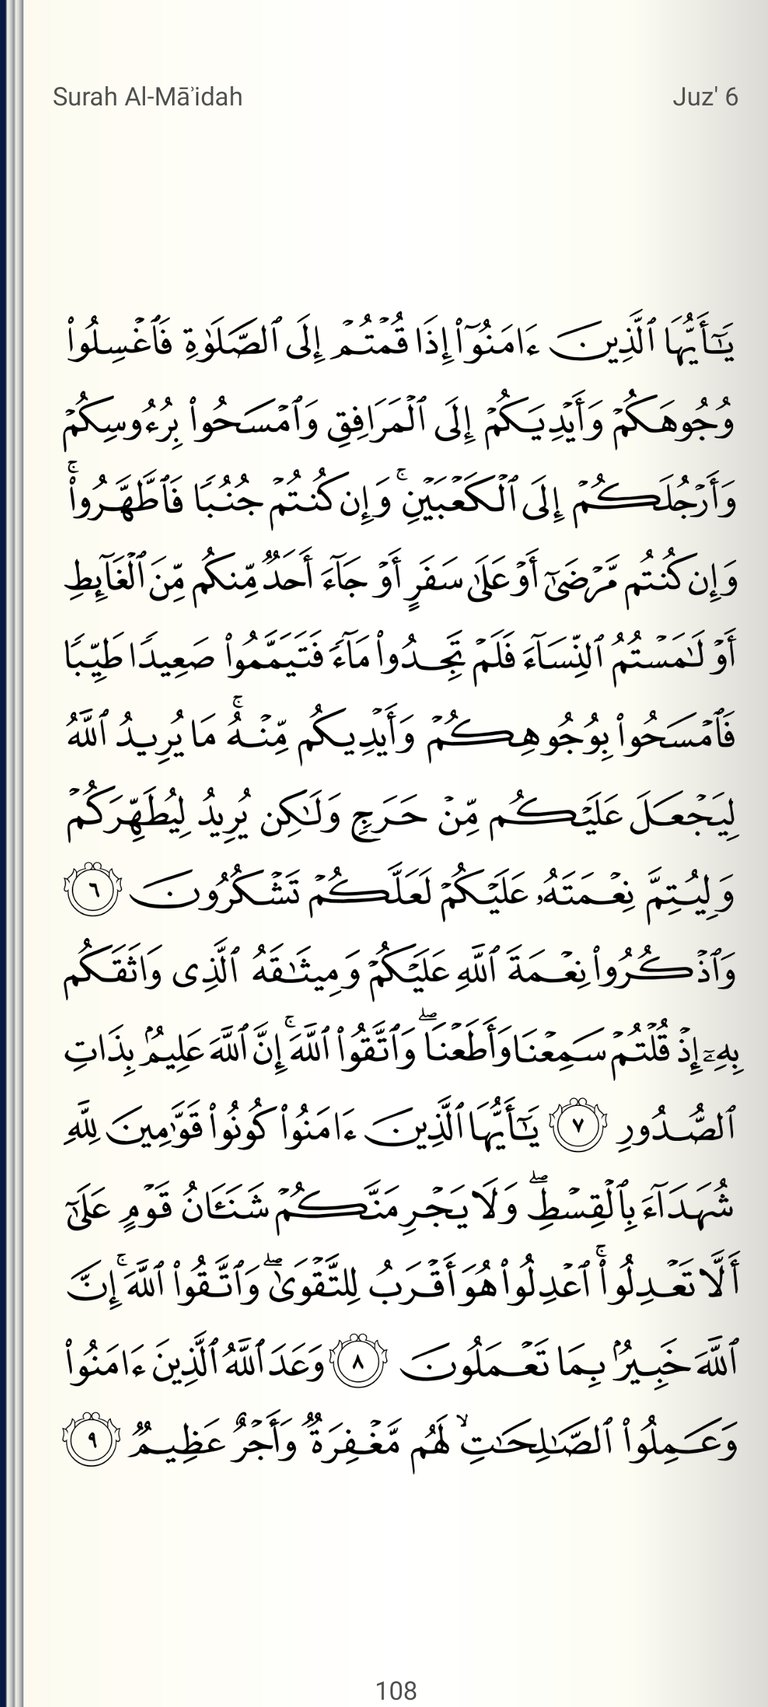 Surah Al-Mā'idah
Juz' 6
يَـٰٓأَيُّهَا ٱلَّذِينَ ءَامَنُوٓا۟ إِذَا قُمْتُمْ إِلَى ٱلصَّلَوٰةِ فَٱغْسِلُوا۟
وُجُوهَكُمْ وَأَيْدِيَكُمْ إِلَى ٱلْمَرَافِقِ وَٱمْسَحُوا۟ بِرُءُوسِكُمْ
وَأَرْجُلَكُمْ إِلَى ٱلْكَعْبَيْنِ ۚ وَإِن كُنتُمْ جُنُبًا فَٱطَّهَّرُوا۟ ۚ
وَإِن كُنتُم مَّرْضَىٰٓ أَوْ عَلَىٰ سَفَرٍ أَوْ جَآءَ أَحَدٌ مِّنكُم مِّنَ ٱلْغَآئِطِ
أَوْ لَـٰمَسْتُمُ ٱلنِّسَآءَ فَلَمْ تَجِدُوا۟ مَآءً فَتَيَمَّمُوا۟ صَعِيدًا طَيِّبًا
فَٱمْسَحُوا۟ بِوُجُوهِكُمْ وَأَيْدِيكُم مِّنْهُ ۚ مَا يُرِيدُ ٱللَّهُ
لِيَجْعَلَ عَلَيْكُم مِّنْ حَرَجٍ وَلَـٰكِن يُرِيدُ لِيُطَهِّرَكُمْ
وَلِيُتِمَّ نِعْمَتَهُۥ عَلَيْكُمْ لَعَلَّكُمْ تَشْكُرُونَ ٦
وَٱذْكُرُوا۟ نِعْمَةَ ٱللَّهِ عَلَيْكُمْ وَمِيثَـٰقَهُ ٱلَّذِى وَاثَقَكُم
بِهِۦٓ إِذْ قُلْتُمْ سَمِعْنَا وَأَطَعْنَا ۖ وَٱتَّقُوا۟ ٱللَّهَ ۚ إِنَّ ٱللَّهَ عَلِيمٌۢ بِذَاتِ
ٱلصُّدُورِ ٧ يَـٰٓأَيُّهَا ٱلَّذِينَ ءَامَنُوا۟ كُونُوا۟ قَوَّٰمِينَ لِلَّهِ
شُهَدَآءَ بِٱلْقِسْطِ ۖ وَلَا يَجْرِمَنَّكُمْ شَنَـَٔانُ قَوْمٍ عَلَىٰٓ
أَلَّا تَعْدِلُوا۟ ۚ ٱعْدِلُوا۟ هُوَ أَقْرَبُ لِلتَّقْوَىٰ ۖ وَٱتَّقُوا۟ ٱللَّهَ ۚ إِنَّ
ٱللَّهَ خَبِيرٌۢ بِمَا تَعْمَلُونَ ٨ وَعَدَ ٱللَّهُ ٱلَّذِينَ ءَامَنُوا۟
وَعَمِلُوا۟ ٱلصَّـٰلِحَـٰتِ ۙ لَهُم مَّغْفِرَةٌ وَأَجْرٌ عَظِيمٌ ٩
108